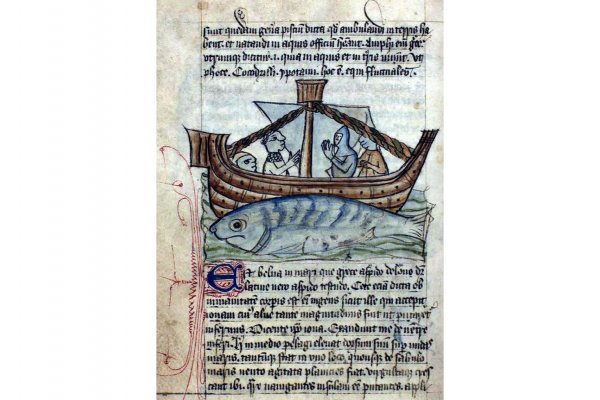 sunt quedam gen̄a pisciū dicta qd̄ ambulandi in terris ha
bent. et natandi in aquis officiū hēant. Amphi em̄ gre
utrumque dicitur .i. quia in aquis et in t'ris uiuūt. vt
phoce. Cocodrilli. ypotami. hoc ē. equi fluctuales.
Est belua in mari que grece aspido delone dr̄
latine vero aspido testudo. Cete eciā dicta ob
inmanitatem corꝑis est eī ingens sicut ille qui excepit
ionam cui' alue tante magnitudinis fuit ut putaret
infernus. Dicente ip̄o iona. Exaudiuit me de uentre
inferi. h' in medio pelagi eleuat dorsum suū sup̄ undas
maris. tantūque stat in vno loco. quousque de sabulo
maris vento agitata planicies fiat. virgultaque cres
cant ibi. Qr̄e nauigantes insulam eē putantes. appli